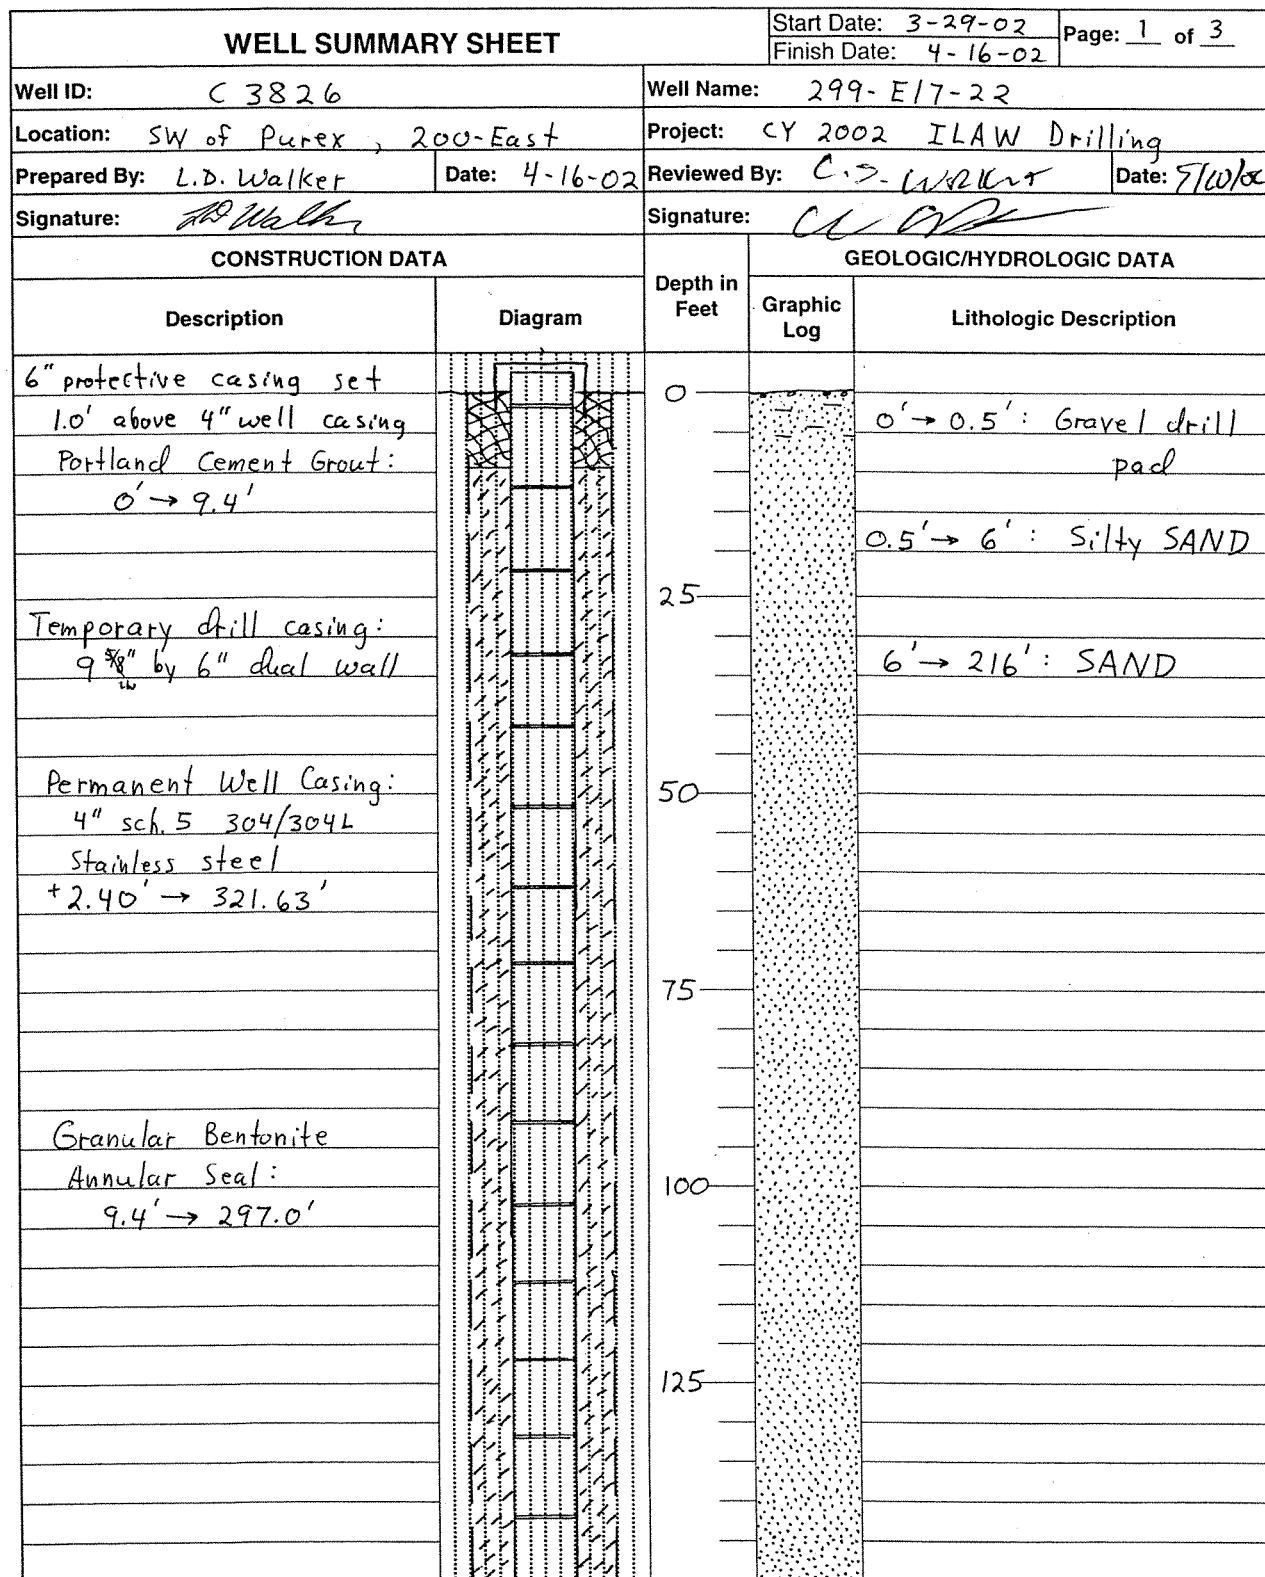 WELL SUMMARY SHEET
Start Date: 3-29-02
Finish Date: 4-16-02
Page: 1 of 3
Well ID: C 3826
Well Name: 299-E17-22
Location: SW of Purex, 200-East
Project: CY 2002 ILAW Drilling
Prepared By: L.D. Walker
Date: 4-16-02
Reviewed By: C.S.
Date:
Signature: LD Walker
Signature:
CONSTRUCTION DATA
GEOLOGIC/HYDROLOGIC DATA
Description
Diagram
Depth in
Feet
Graphic
Log
Lithologic Description
6" protective casing set
1.0' above 4" well casing
Portland Cement Grout:
0' → 9.4'
Temporary drill casing:
9 5/8" by 6" dual wall
Permanent Well Casing:
4" sch. 5 304/304L
Stainless steel
+2.40' → 321.63'
Granular Bentonite
Annular Seal:
9.4' → 297.0'
0
25
50
75
100
125
0' → 0.5': Gravel drill
pad
0.5' → 6': Silty SAND
6' → 216': SAND